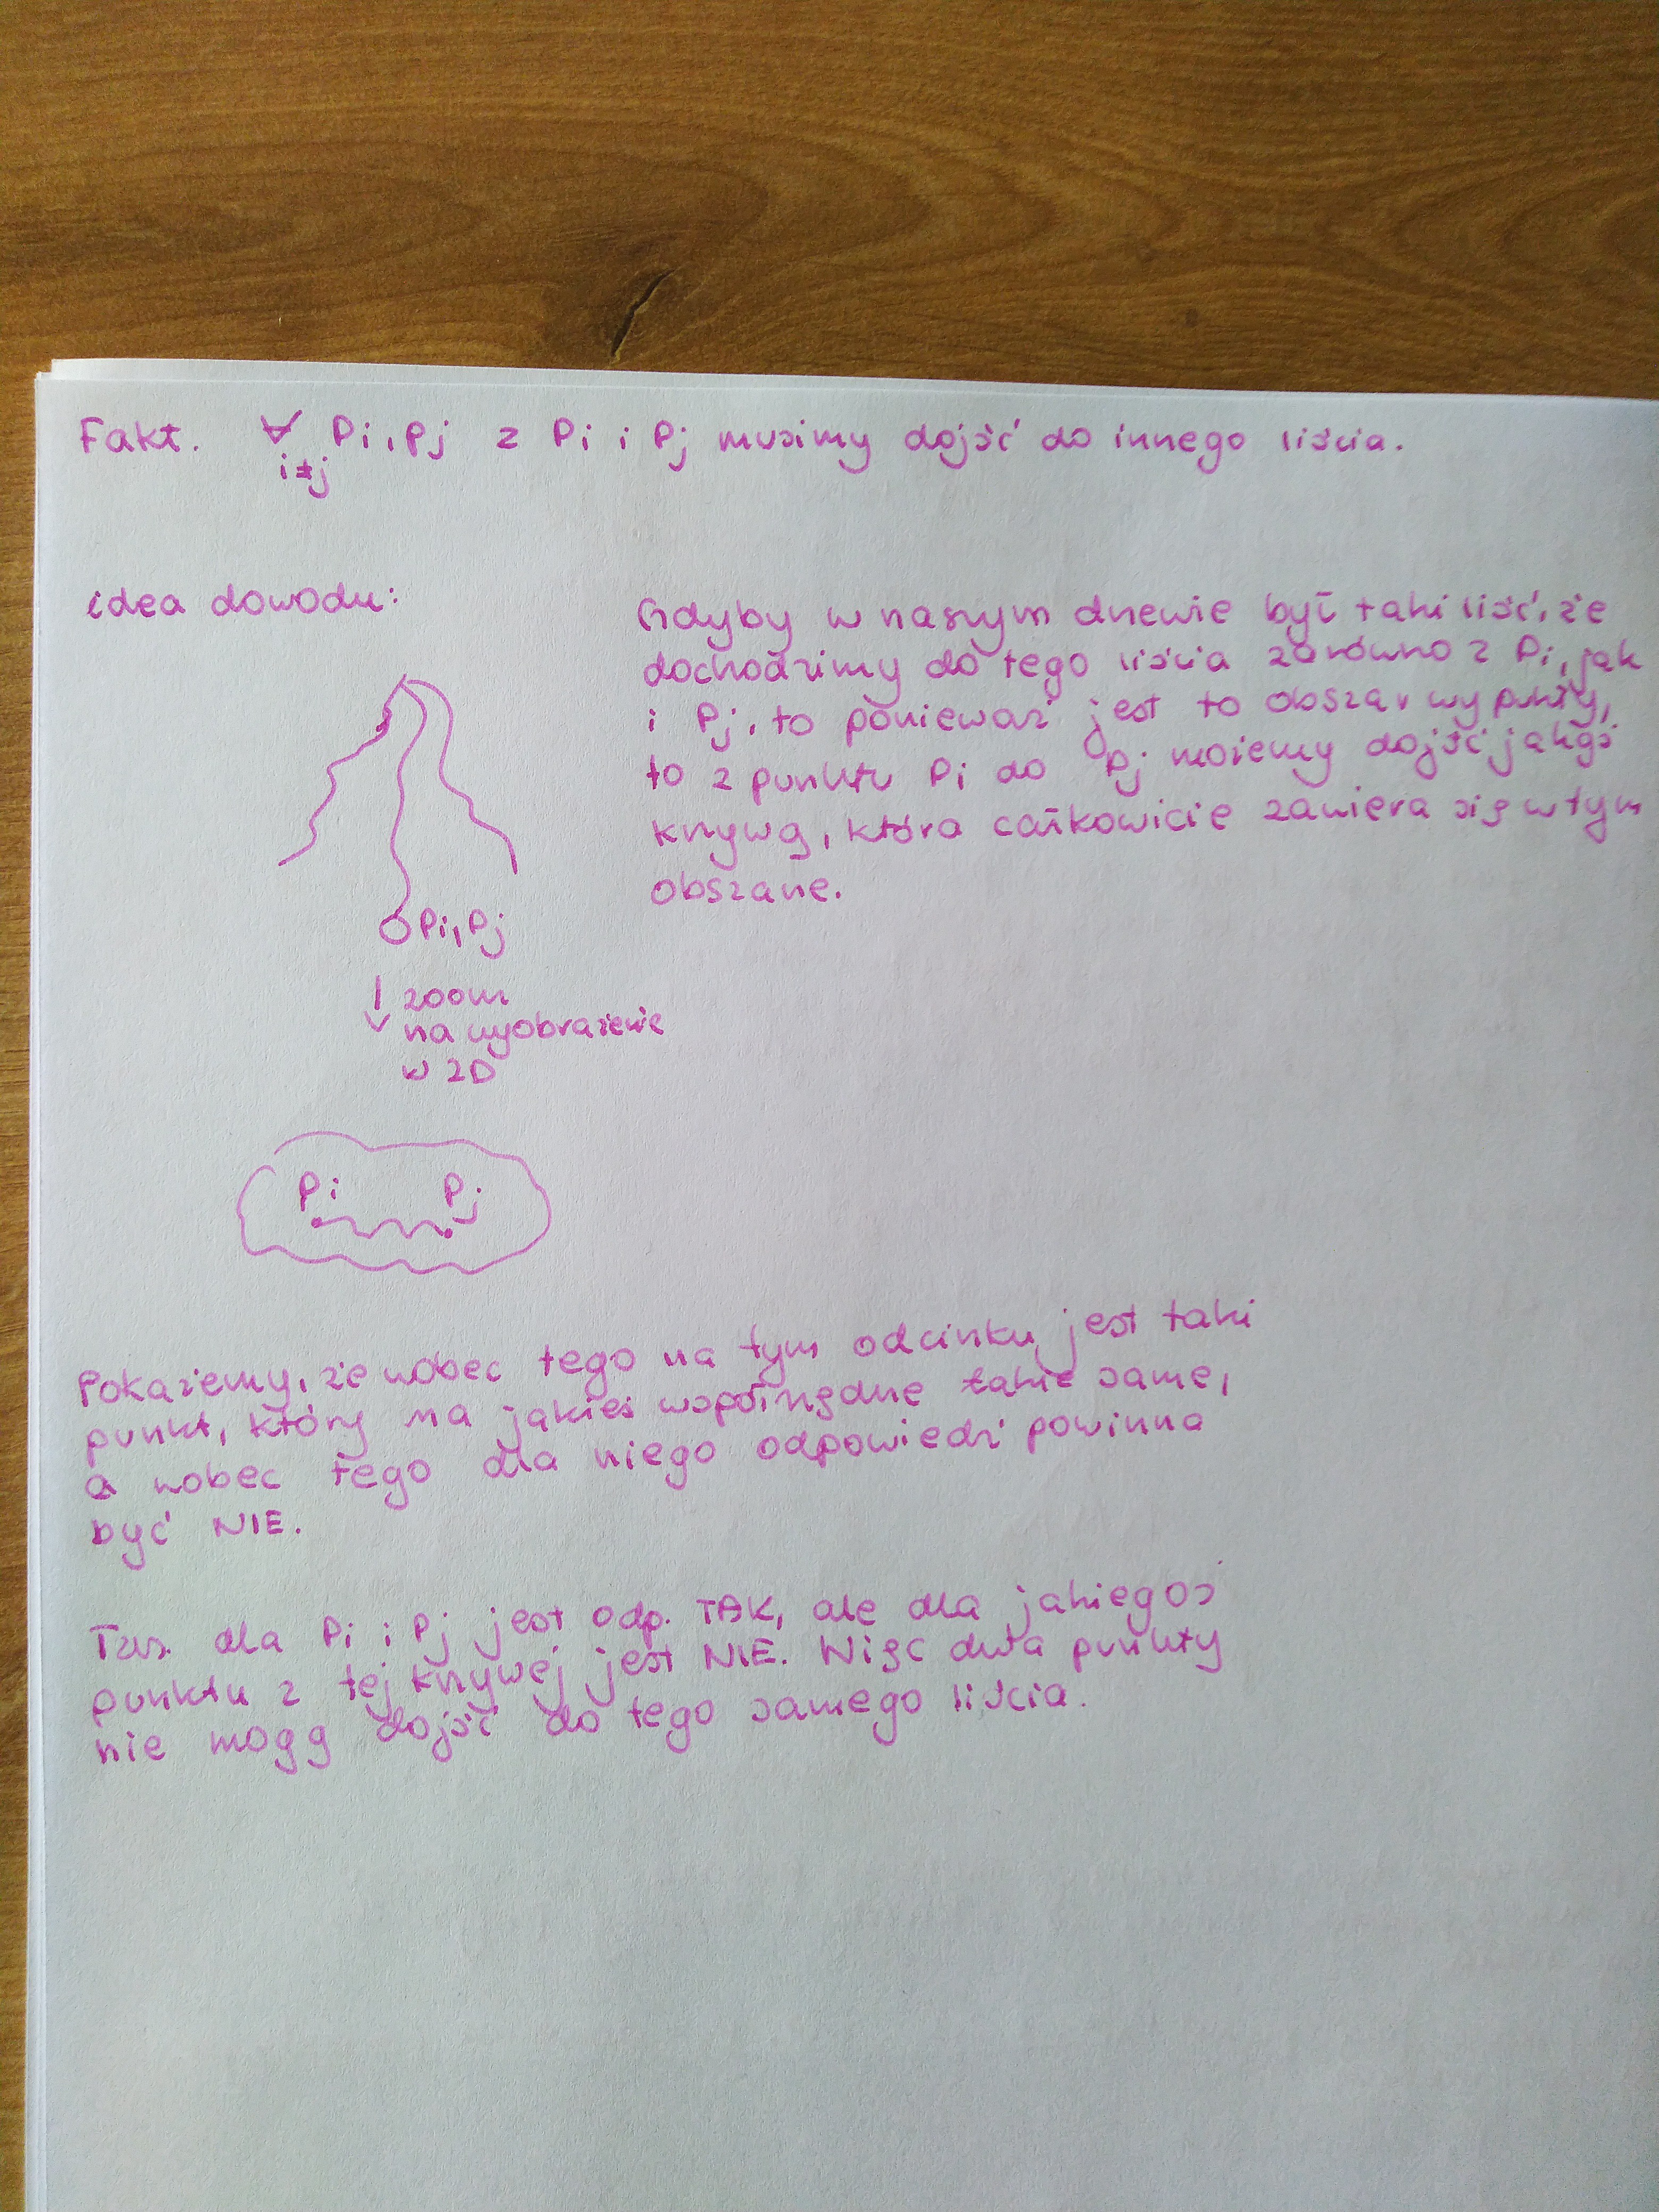 Fakt. ∀ Pi, Pj z Pi i Pj musimy dojść do innego liścia.
i≠j
idea dowodu:
Gdyby w naszym drzewie był taki liść, że
dochodzimy do tego liścia zarówno z Pi, jak
i Pj, to ponieważ jest to obszar wypukły,
to z punktu Pi do Pj możemy dojść jakąś
krzywą, która całkowicie zawiera się w tym
obszarze.
Pi, Pj
↓ zoom
na wyobrażenie
w 2D
Pi Pj
Pokażemy, że wobec tego na tym odcinku jest taki
punkt, który ma jakieś współrzędne takie same,
a wobec tego dla niego odpowiedź powinna
być NIE.
Tzn. dla Pi i Pj jest odp. TAK, ale dla jakiegoś
punktu z tej krzywej jest NIE. Więc dwa punkty
nie mogą dojść do tego samego liścia.